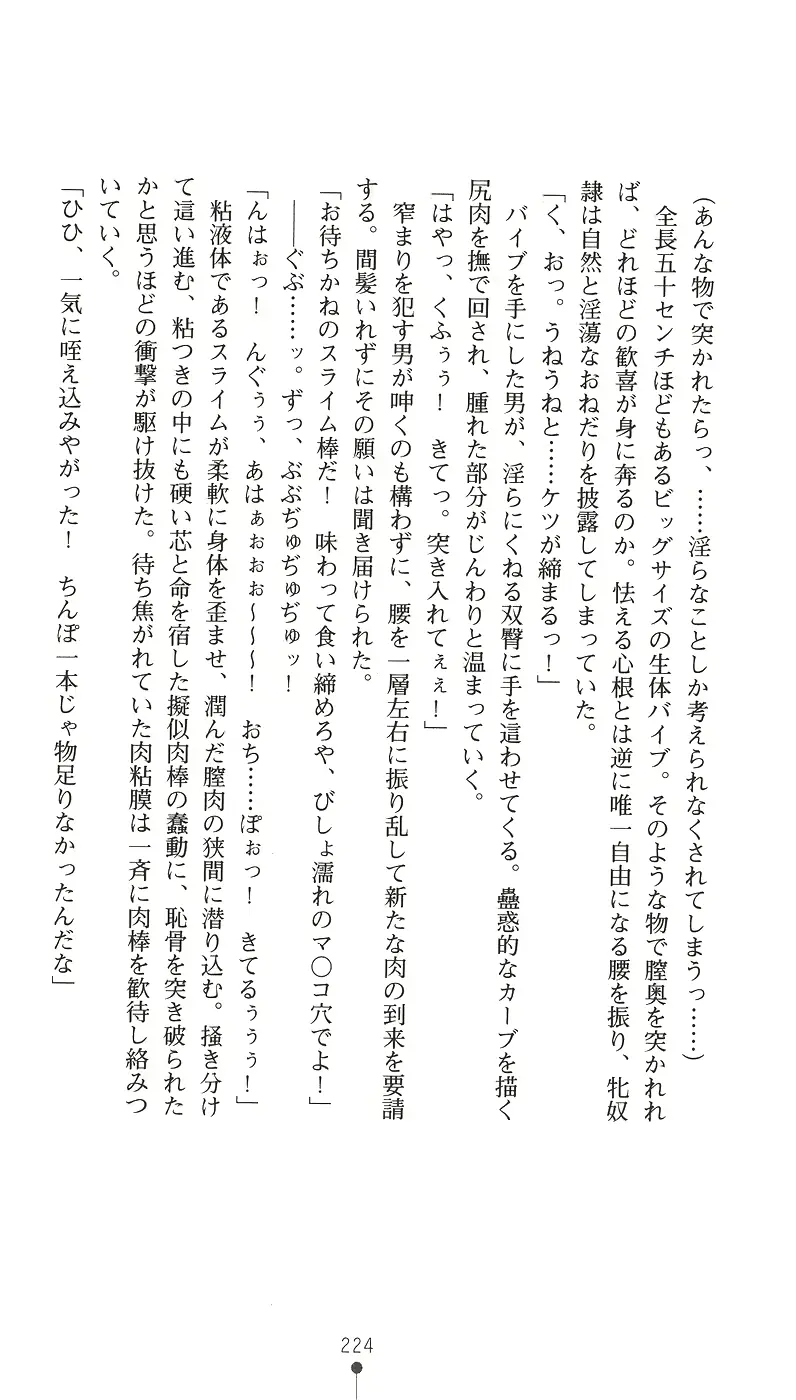 (あんな物で突かれたらっ、……淫らなことしか考えられなくされてしまうっ……)
　全長五十センチほどもあるビッグサイズの生体バイブ。そのような物で膣奥を突かれれ
ば、どれほどの歓喜が身に奔るのか。怯える心根とは逆に唯一自由になる腰を振り、牝奴
隷は自然と淫蕩なおねだりを披露してしまっていた。
「く、おっ。うねうねと……ケツが締まるっ！」
　バイブを手にした男が、淫らにくねる双臀に手を這わせてくる。蠱惑的なカーブを描く
尻肉を撫で回され、腫れた部分がじんわりと温まっていく。
「はやっ、くふぅぅ！　きてっ。突き入れてぇぇ！」
　窄まりを犯す男が呻くのも構わずに、腰を一層左右に振り乱して新たな肉の到来を要請
する。間髪いれずにその願いは聞き届けられた。
「お待ちかねのスライム棒だ！　味わって食い締めろや、びしょ濡れのマ〇コ穴でよ！」
　――ぐぶ……ッ。ずっ、ぶぶぢゅぢゅぢゅッ！
「んはぉっ！　んぐぅぅ、あはぁぉぉぉ～～～！　おち……ぽぉっ！　きてるぅぅぅ！」
　粘液体であるスライムが柔軟に身体を歪ませ、潤んだ膣肉の狭間に潜り込む。掻き分け
て這い進む、粘つきの中にも硬い芯と命を宿した擬似肉棒の蠢動に、恥骨を突き破られた
かと思うほどの衝撃が駆け抜けた。待ち焦がれていた肉粘膜は一斉に肉棒を歓待し絡みつ
いていく。
「ひひ、一気に咥え込みやがった！　ちんぽ一本じゃ物足りなかったんだな」
224